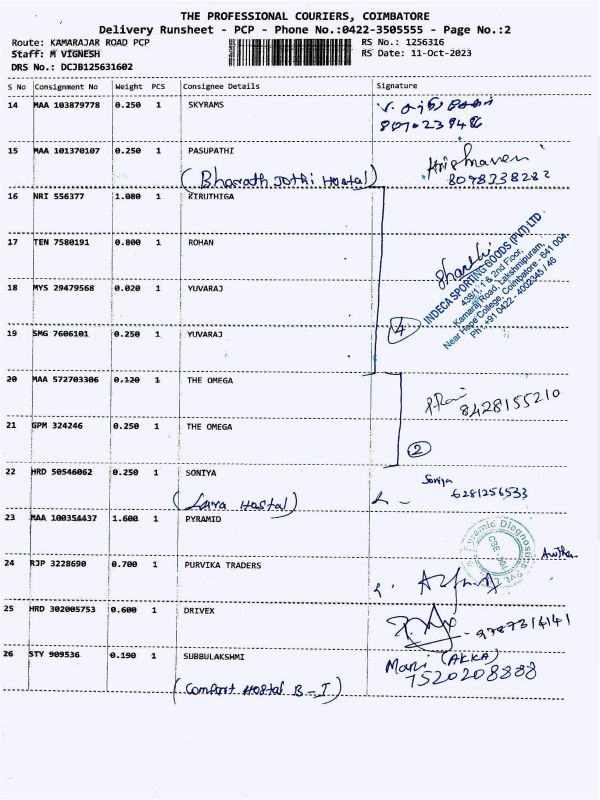 THE PROFESSIONAL COURIERS, COIMBATORE
Delivery Runsheet - PCP - Phone No.:0422-3505555 - Page No.:2
Route: KAMARAJAR ROAD PCP RS No.: 1256316
Staff: M VIGNESH RS Date: 11-Oct-2023
DRS No.: DCJB125631602
S No Consignment No Weight PCS Consignee Details Signature
14 MAA 103879778 0.250 1 SKYRAMS
15 MAA 101370107 0.250 1 PASUPATHI
(Bharath Jothi Hostal)
8098338282
16 NRI 556377 1.080 1 KIRUTHIGA
17 TEN 7580191 0.800 1 ROHAN
Sharathi
INDECA SPORTING GOODS (PVT) LTD
438/1, 1 & 2nd Floor,
Kamaraj Road, Lakshmipuram,
Near Hope College, Coimbatore - 641 004.
Ph: +91 0422 - 4002345 / 46
18 MYS 29479568 0.020 1 YUVARAJ
4
19 SMG 7606101 0.250 1 YUVARAJ
20 MAA 572703306 0.120 1 THE OMEGA
8428155210
21 GPM 324246 0.250 1 THE OMEGA
2
22 HRD 50546062 0.250 1 SONIYA
Soniya
6281256533
(Lara Hostal)
23 MAA 100354437 1.600 1 PYRAMID
24 RJP 3228690 0.700 1 PURVIKA TRADERS
25 HRD 302005753 0.600 1 DRIVEX
9787314141
26 STY 909536 0.190 1 SUBBULAKSHMI
Mari (AKKA)
7520208888
(Comfort Hostal B-I)